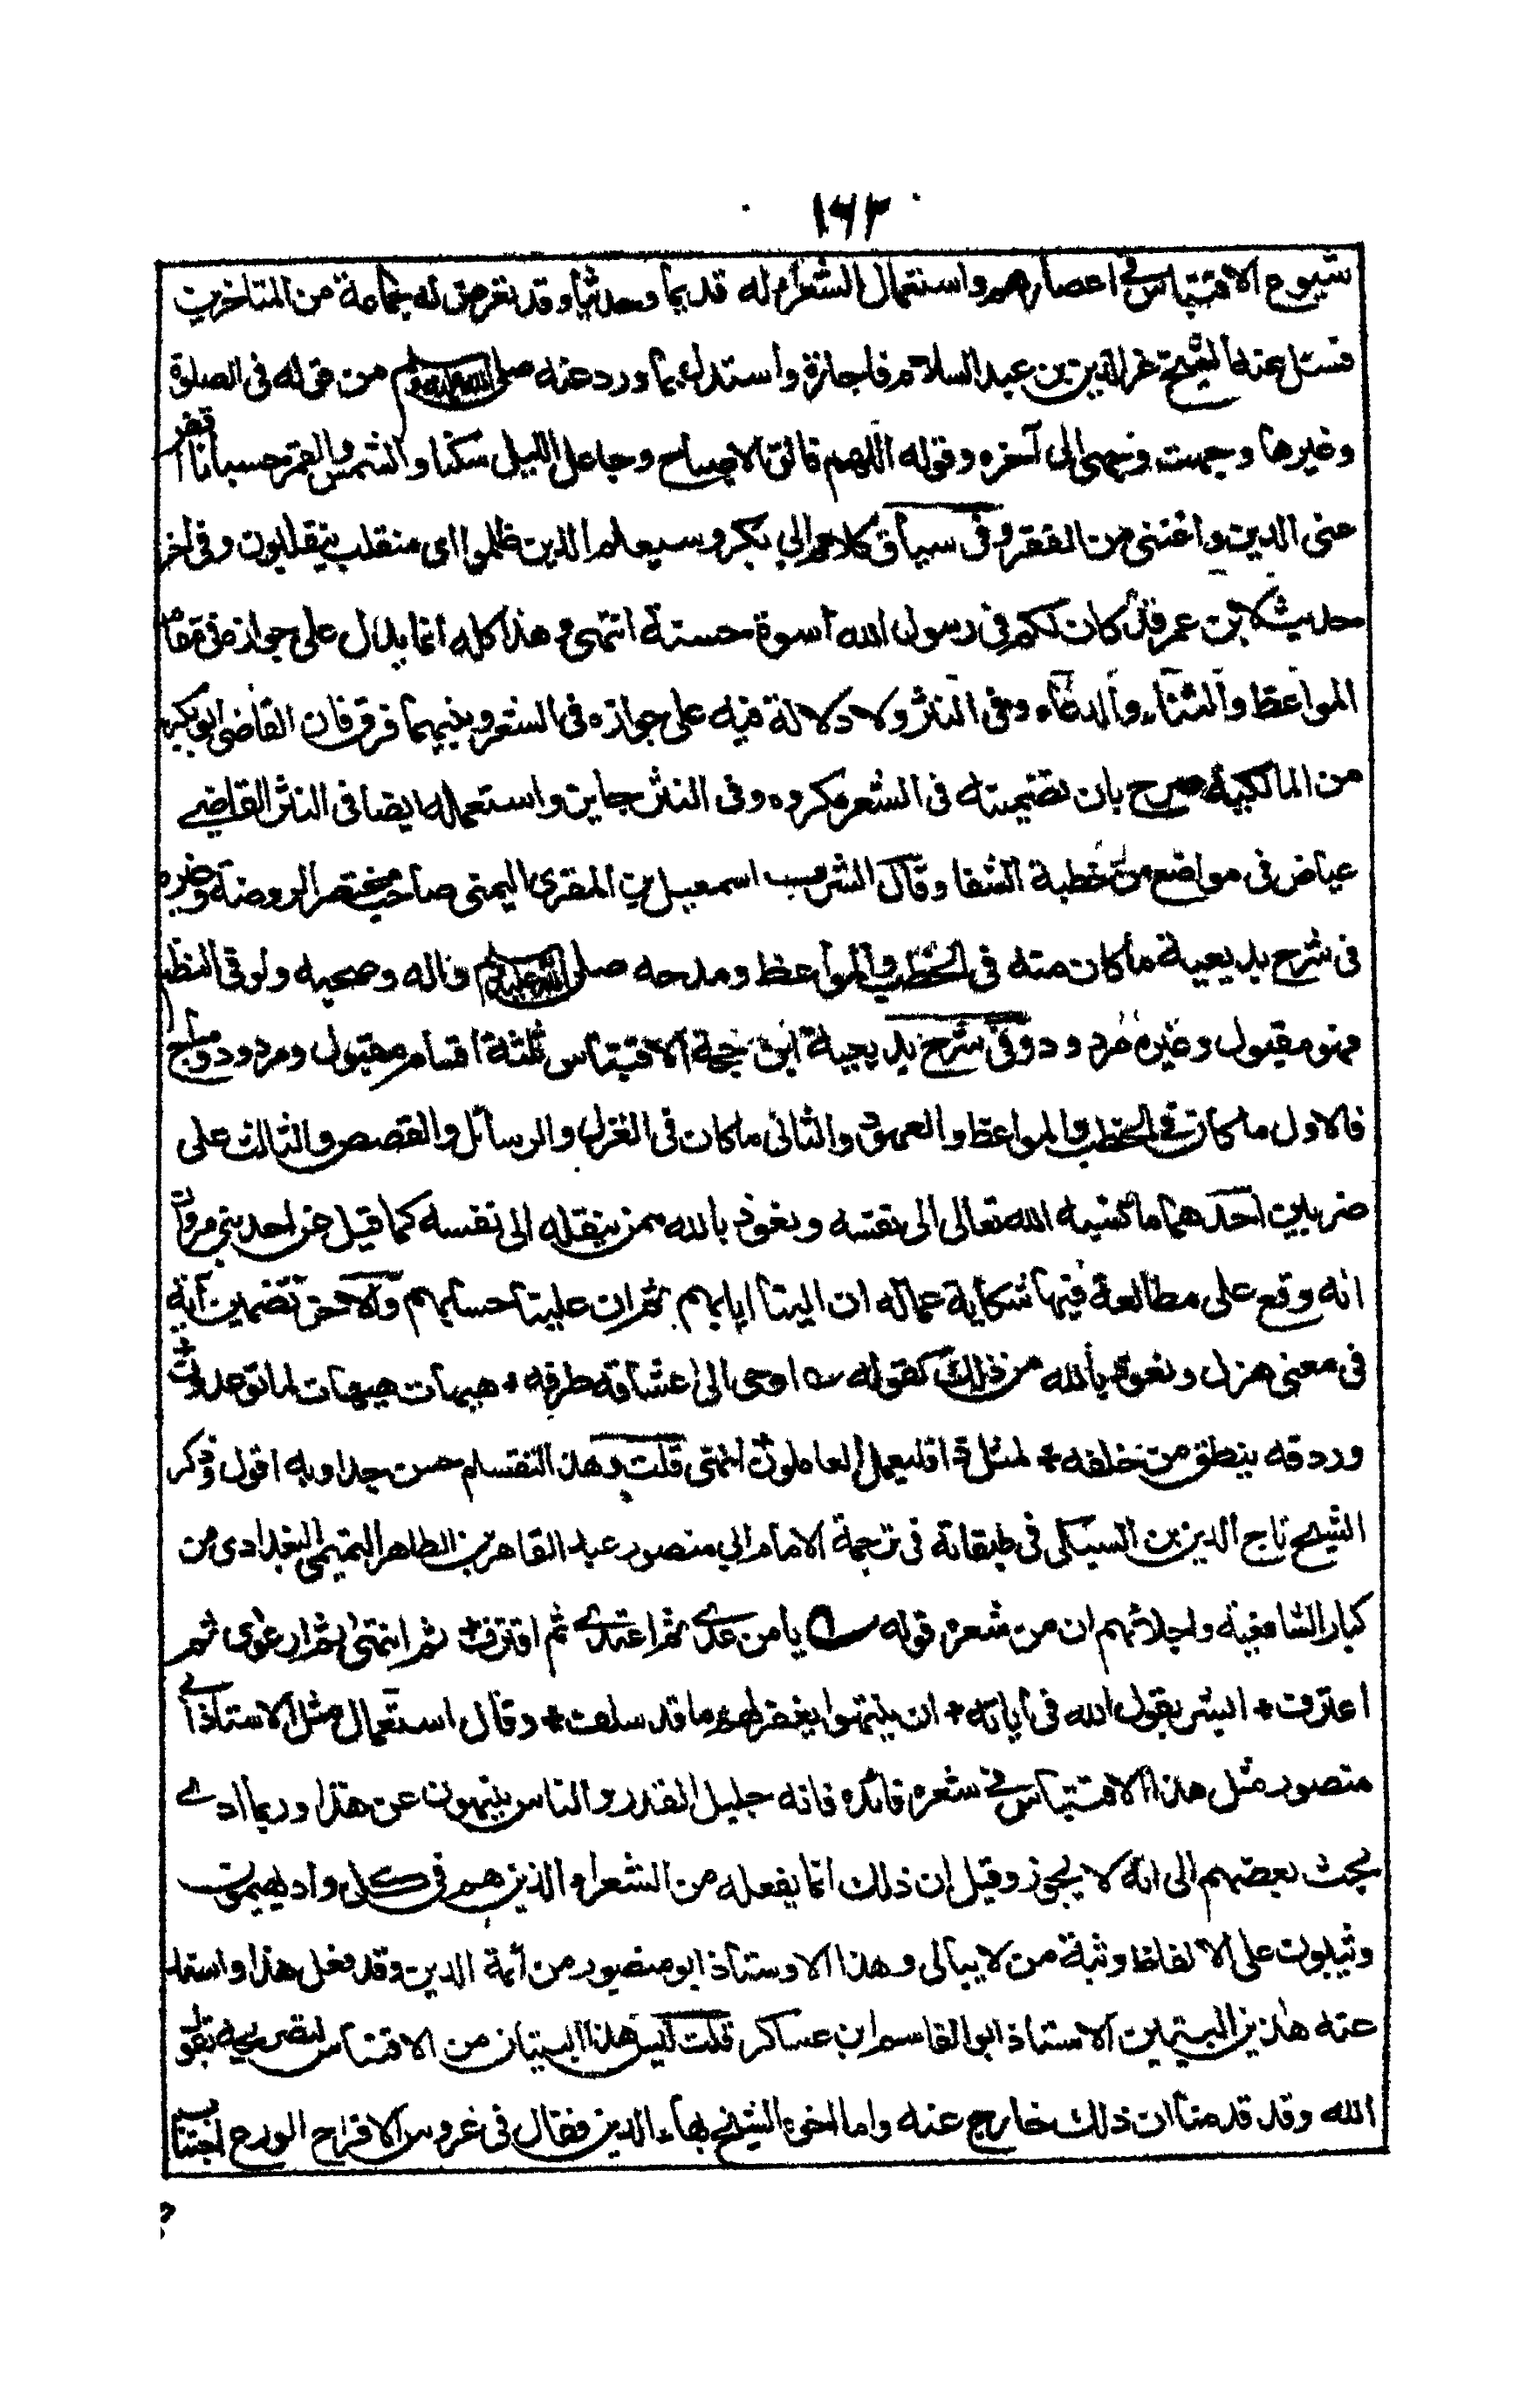 ١٦٣
شيوع الاقتباس في اعصارهم واستعمال الشعراء له قديما وحديثا وقد تعرض له جماعة من المتاخرين
فسئل عنه الشيخ عز الدين بن عبد السلام فاجازه واستدل بما ورد عنه صلى الله عليه وسلم من قوله في الصلوة
وغيرها وجهت وجهي الى آخره وقوله اللهم فالق الاصباح وجاعل الليل سكنا والشمس والقمر حسبانا اقض
عنى الدين واغننى من الفقر وفي سياق كلام ابي بكر وسيعلم الذين ظلموا اي منقلب ينقلبون وفي اخر
حديث لابن عمر قد كان لكم في رسول الله اسوة حسنة انتهى وهذا كله انما يدل على جوازه في مقام
المواعظ والثناء والدعاء وفي النثر ولا دلالة فيه على جوازه في الشعر وبينهما فرق فان القاضي ابو بكر
من المالكية صرح بان تضمينه في الشعر مكروه وفي النثر جايز واستعمله ايضا في النثر القاضي
عياض في مواضع من خطبة الشفا وقال الشرف اسمعيل بن المقرى اليمنى صاحب مختصر الروضة وغيره
في شرح بديعية ما كان منه في الخطب والمواعظ ومدحه صلى الله عليه وسلم واله وصحبه ولو في النظم
فهو مقبول وغيره مردود وفي شرح بديعية ابن حجة الاقتباس ثلثة اقسام مقبول ومردود ومباح
فالاول ما كان في الخطب والمواعظ والعهود والثاني ما كان في الغزل والرسائل والقصص والثالث على
ضربين احدهما ما نسبه الله تعالى الى نفسه ونعوذ بالله ممن ينقله الى نفسه كما قيل عن احد بني مروان
انه وقع على مطالعة فيها شكاية عماله ان الينا ايابهم ثم ان علينا حسابهم والاخر تضمين آية
في معنى هزل ونعوذ بالله من ذلك كقوله اوحى الى عشاقه طرفه هيهات هيهات لما توعدون
وردفه ينطق من خلفه لمثل ذا فليعمل العاملون انتهى قلت وهذا التقسيم حسن جدا وبه اقول وذكر
الشيخ تاج الدين بن السبكي في طبقاته في ترجمة الامام ابي منصور عبد القاهر بن الطاهر التميمى البغدادى من
كبار الشافعية واجلائهم ان من شعره قوله يا من عدى ثم اعتدى ثم اقترف ثم انتهى ثم ارعوى ثم
اعترف ابشر بقول الله في آياته ان ينتهوا يغفر لهم ما قد سلف وقال استعمال مثل الاستاذ ابي
منصور مثل هذا الاقتباس في شعره فائده فانه جليل القدر والناس ينهون عن هذا وربما ادى
بحث بعضهم الى انه لا يجوز وقيل ان ذلك انما يفعله من الشعراء الذين هم في كل واد يهيمون
وثيبون على الالفاظ وثبة من لا يبالى وهذا الاوستاذ ابو منصور من أئمة الدين وقد فعل هذا واسند
عنه هذين البيتين الاستاذ ابو القاسم ابن عساكر قلت ليس هذا البيتان من الاقتباس لتصريحه بقول
الله وقد قدمنا ان ذلك خارج عنه واما اخوه الشيخ بهاء الدين فقال في عروس الافراح الورع اجتناب